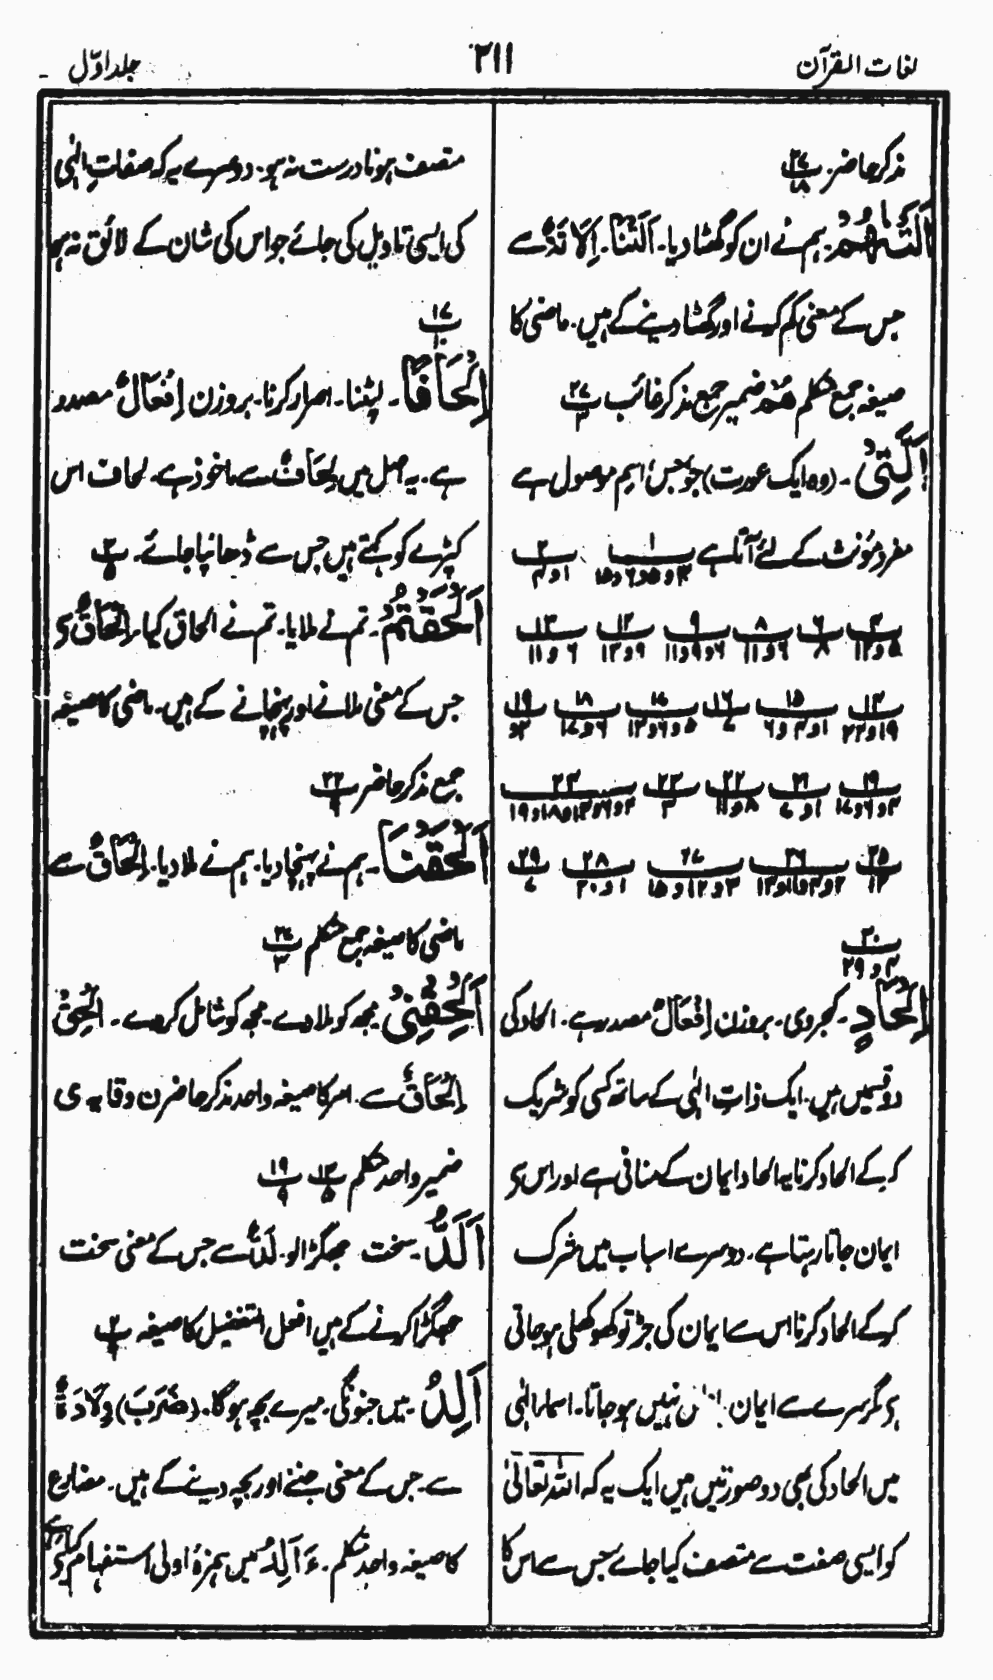 لغات القرآن
۲۱۱
جلد اوّل
مذکر حاضر. پ ۲۷/۸
اَلَتْنٰهُمْ ہم نے ان کو گھٹا دیا۔ اَلَتْنَا۔ اِلَاتَۃٌ سے
جس کے معنی کم کرنے اور گھٹا دینے کے ہیں۔ ماضی کا
صیغہ جمع متکلم هُمْ ضمیر جمع مذکر غائب پ ۲۷/۳
اَلَّتِیْ۔ (وہ ایک عورت) جو، جس، اسم موصول ہے
مفرد مؤنث کے لئے آتا ہے ۱/۳ و ۵ و ۶ و ۱۵ ۲/۱ و ۴
۴/۵ و ۱۲ ۶/۸ ۸/۶ و ۱۱ ۹/۶ و ۹ و ۱۱ ۱۲/۹ و ۱۲ ۱۳/۶ و ۱۱
۱۳/۱۹ و ۲۲ ۱۵/۱ و ۴ و ۶ ۱۶/۷ ۱۷/۵ و ۶ و ۱۲ ۱۸/۶ و ۱۷ ۱۹/۲ و
۱۹/۳ و ۶ و ۱۷ ۲۱/۱ و ۷ ۲۲/۸ و ۱۱ ۲۳/۳ ۲۴/۲ و ۶ و ۱۲ و ۱۸ و ۱۹
۲۵/۱۲ ۲۶/۲ و ۳ و ۱۱ و ۱۲ ۲۷/۳ و ۱۲ و ۱۵ ۲۸/۱ و ۲۰ ۲۹/۷
۳۰/۴ و ۲۹
اِلْحَادٍ۔ کجروی۔ بروزن اِفْعَالٌ مصدر ہے۔ الحاد کی
دو قسمیں ہیں۔ ایک ذاتِ الٰہی کے ساتھ کسی کو شریک
کر کے الحاد کرنا یہ الحاد ایمان کے منافی ہے اور اس سے
ایمان جاتا رہتا ہے۔ دوسرے اسباب میں شرک
کر کے الحاد کرنا اس سے ایمان کی جڑ تو کھوکھلی ہو جاتی
ہے مگر سرے سے ایمان نہیں ہو جاتا۔ اسماء الٰہی
میں الحاد کی بھی دو صورتیں ہیں ایک یہ کہ اللہ تعالیٰ
کو ایسی صفت سے متصف کیا جائے جس سے اس کا
متصف ہونا درست نہ ہو۔ دوسرے یہ کہ صفاتِ الٰہی
کی ایسی تاویل کی جائے جو اس کی شان کے لائق نہ ہو
پ ۱۷/۱۰
اِلْحَافًا۔ لپٹنا۔ اصرار کرنا۔ بروزن اِفْعَالٌ مصدر
ہے۔ یہ اصل میں لِحَافٌ سے ماخوذ ہے۔ لحاف اس
کپڑے کو کہتے ہیں جس سے ڈھانپا جائے۔ پ ۳/۵
اَلْحَقْتُمْ۔ تم نے ملایا۔ تم نے الحاق کیا۔ اِلْحَاقٌ سے
جس کے معنی ملانے اور پہنچانے کے ہیں۔ ماضی کا صیغہ
جمع مذکر حاضر پ ۲۲/۹
اَلْحَقْنَا۔ ہم نے پہنچا دیا۔ ہم نے ملا دیا۔ اِلْحَاقٌ سے
ماضی کا صیغہ جمع متکلم پ ۲۷/۳
اَلْحِقْنِیْ۔ مجھ کو ملا دے۔ مجھ کو شامل کر دے۔ اَلْحِقْ
اِلْحَاقٌ سے۔ امر کا صیغہ واحد مذکر حاضر ن وقایہ ی
ضمیر واحد متکلم پ ۱۳/۵ پ ۱۹/۹
اَلَدُّ۔ سخت جھگڑالو۔ لَدٌّ سے جس کے معنی سخت
جھگڑا کرنے کے ہیں افعل التفضیل کا صیغہ پ ۲/۹
اَلِدُ۔ میں جنونگی۔ میرے بچہ ہو گا۔ (ضَرَبَ) وِلَادَۃٌ
سے۔ جس کے معنی جننے اور بچہ دینے کے ہیں۔ مضارع
کا صیغہ واحد متکلم۔ ءَاَلِدُ میں ہمزۂ اولیٰ استفہام کے